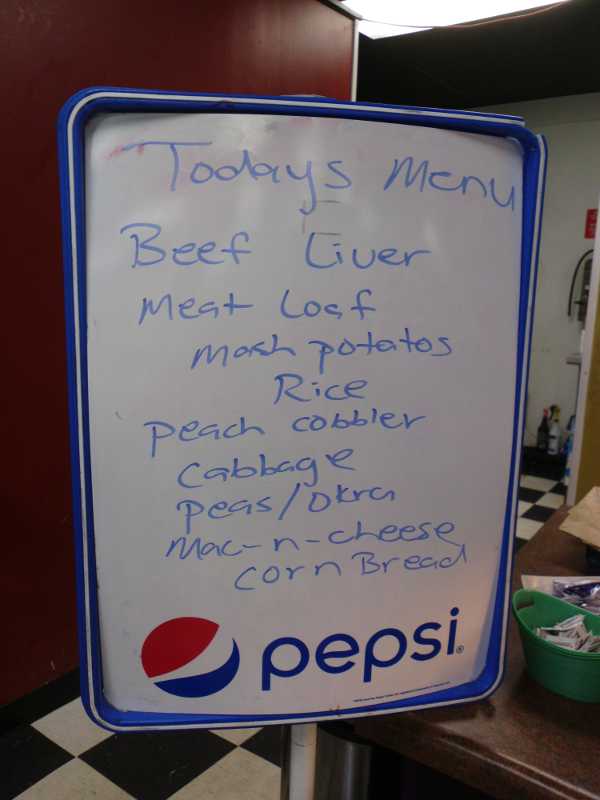 Todays Menu
Beef Liver
Meat Loaf
mash potatos
Rice
peach cobbler
cabbage
peas/okra
Mac-n-cheese
corn Bread
pepsi